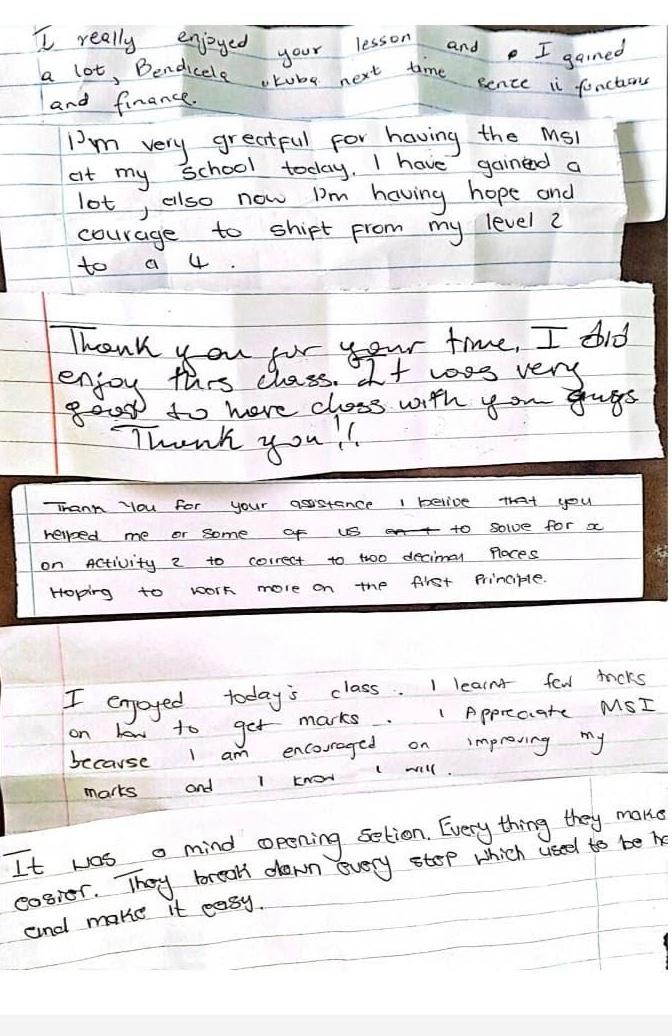 I really enjoyed your lesson and I gained
a lot, Bendicela ukuba next time senze ii functions
and finance.
I'm very greatful for having the MSI
at my school today. I have gained a
lot, also now I'm having hope and
courage to shift from my level 2
to a 4.
Thank you for your time, I did
enjoy this class. It was very
good to have class with you guys
Thank you!!
Thank You for your assistance I belive that you
helped me or some of us to solve for x
on Activity 2 to correct to two decimal Places
Hoping to work more on the first Principle.
I enjoyed today's class. I learnt few tricks
on how to get marks. I Appreciate MSI
because I am encouraged on improving my
marks and I know I will.
It was a mind opening setion. Every thing they make
easier. They break down every step which used to be ha
and make it easy.